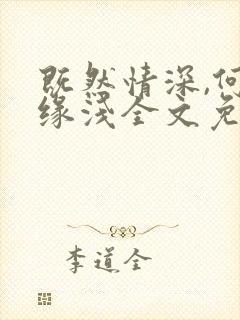 既然情深,何
缘浅全文免
李道全